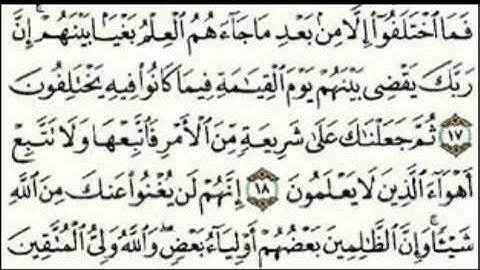 فَمَا ٱخْتَلَفُوٓا۟ إِلَّا مِنۢ بَعْدِ مَا جَآءَهُمُ ٱلْعِلْمُ بَغْيًۢا بَيْنَهُمْ ۚ إِنَّ
رَبَّكَ يَقْضِى بَيْنَهُمْ يَوْمَ ٱلْقِيَٰمَةِ فِيمَا كَانُوا۟ فِيهِ يَخْتَلِفُونَ
١٧ ثُمَّ جَعَلْنَٰكَ عَلَىٰ شَرِيعَةٍ مِّنَ ٱلْأَمْرِ فَٱتَّبِعْهَا وَلَا تَتَّبِعْ
أَهْوَآءَ ٱلَّذِينَ لَا يَعْلَمُونَ ١٨ إِنَّهُمْ لَن يُغْنُوا۟ عَنكَ مِنَ ٱللَّهِ
شَيْـًٔا ۚ وَإِنَّ ٱلظَّٰلِمِينَ بَعْضُهُمْ أَوْلِيَآءُ بَعْضٍ ۖ وَٱللَّهُ وَلِىُّ ٱلْمُتَّقِينَ